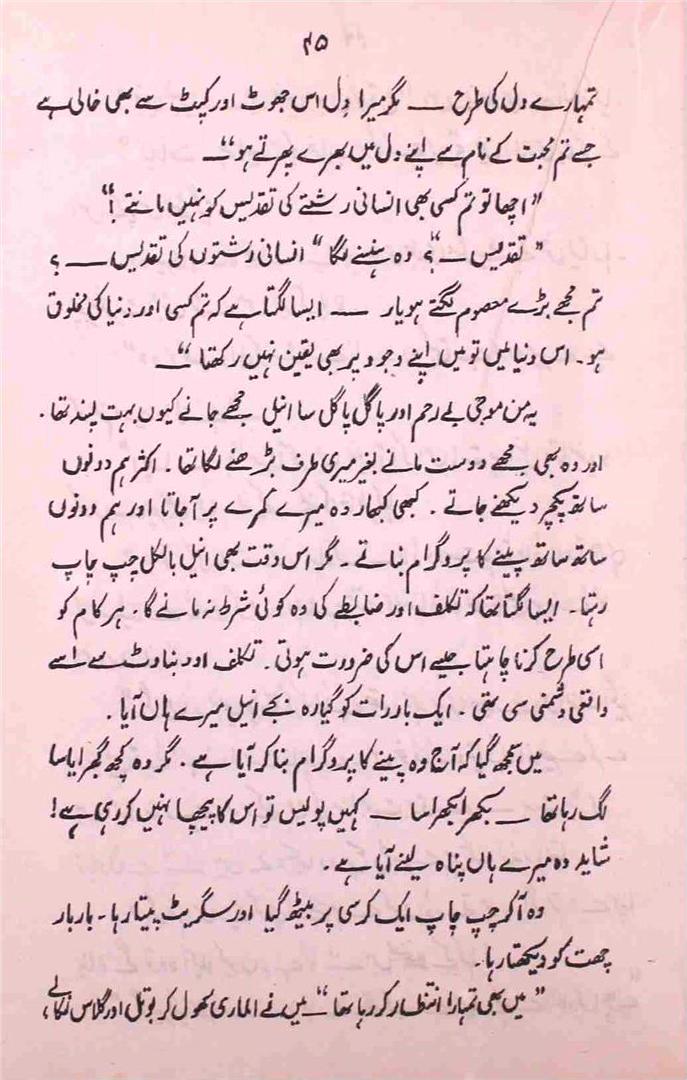 ۴۵
تمہارے دل کی طرح — مگر میرا دل اس جھوٹ اور کپٹ سے بھی خالی ہے
جسے تم محبت کے نام سے اپنے دل میں بھرے پھرتے ہو"—
"اچھا تو تم کسی بھی انسانی رشتے کی تقدیس کو نہیں مانتے !"
"تقدیس —؟" وہ ہنسنے لگا "انسانی رشتوں کی تقدیس — ؟
تم مجھے بڑے معصوم لگتے ہو یار — ایسا لگتا ہے کہ تم کسی اور دنیا کی مخلوق
ہو۔ اس دنیا میں تو میں اپنے وجود پر بھی یقین نہیں رکھتا"—
یہ من موجی بے رحم اور پاگل پاگل سا انیل مجھے جانے کیوں بہت پسند تھا۔
اور وہ بھی مجھے دوست مانے بغیر میری طرف بڑھنے لگا تھا۔ اکثر ہم دونوں
ساتھ پکچر دیکھنے جاتے۔ کبھی کبھار وہ میرے کمرے پر آجاتا اور ہم دونوں
ساتھ ساتھ پینے کا پروگرام بناتے۔ مگر اس وقت بھی انیل بالکل چپ چاپ
رہتا۔ ایسا لگتا تھا کہ تکلف اور ضابطے کی وہ کوئی شرط نہ مانے گا۔ ہر کام کو
اسی طرح کرنا چاہتا جیسے اس کی ضرورت ہوتی۔ تکلف اور بناوٹ سے اسے
واقعی دشمنی سی تھی۔ ایک بار رات کو گیارہ بجے انیل میرے ہاں آیا۔
میں سمجھ گیا کہ آج وہ پینے کا پروگرام بنا کر آیا ہے۔ مگر وہ کچھ گھبرایا سا
لگ رہا تھا — بکھرا بکھرا سا — کہیں پولیس تو اس کا پیچھا نہیں کر رہی ہے!
شاید وہ میرے ہاں پناہ لینے آیا ہے۔
وہ آکر چپ چاپ ایک کرسی پر بیٹھ گیا اور سگریٹ پیتا رہا۔ بار بار
چھت کو دیکھتا رہا۔
"میں بھی تمہارا انتظار کر رہا تھا"— میں نے الماری کھول کر بوتل اور گلاس نکالے،